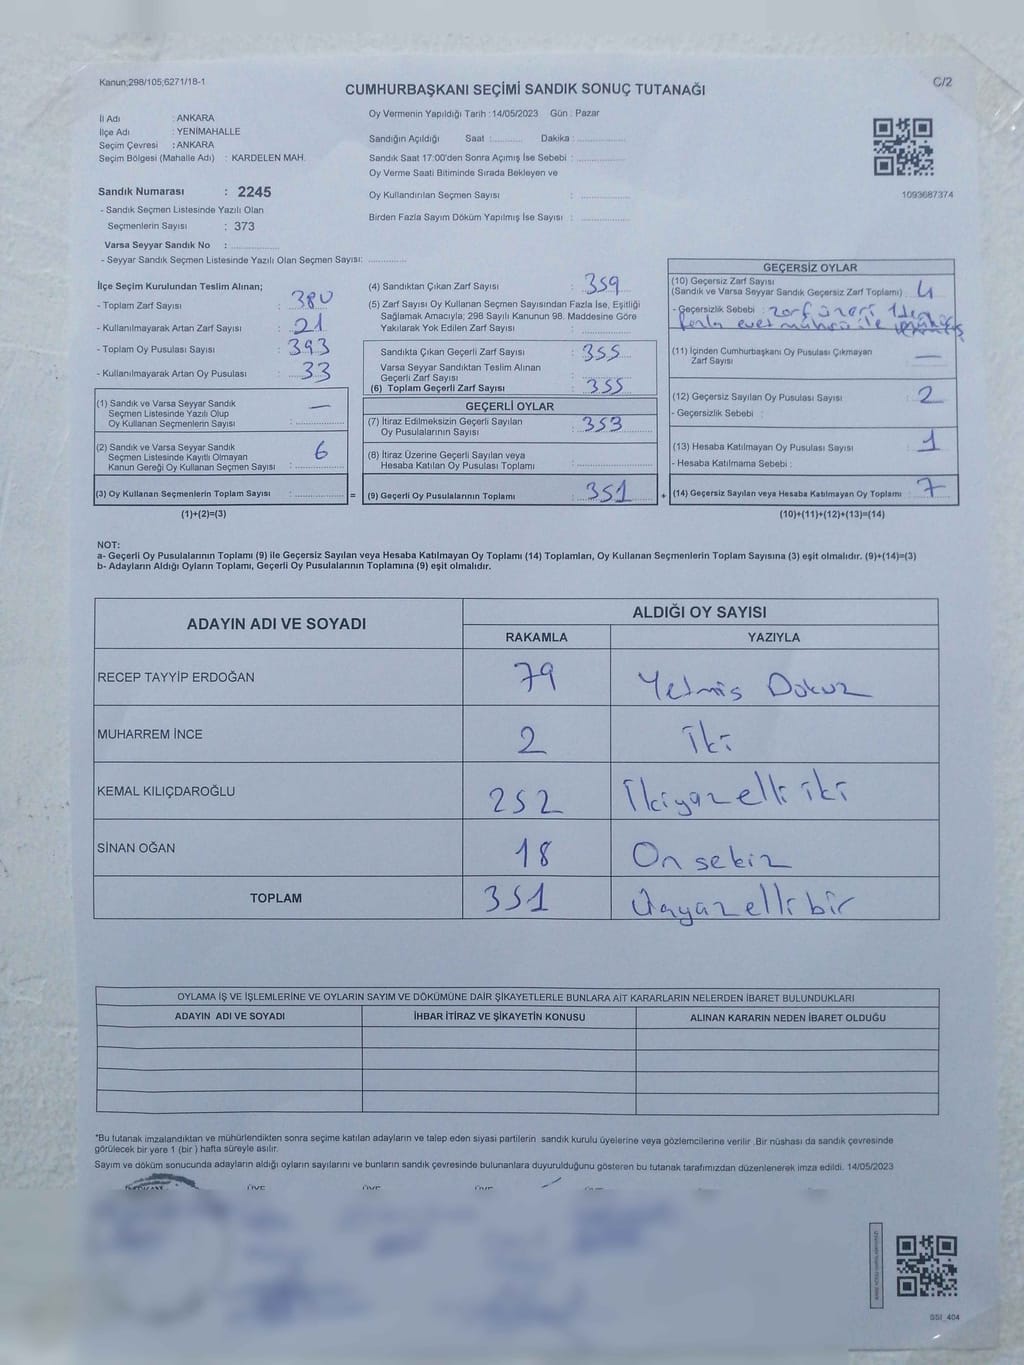 Kanun;298/105;6271/18-1
C/2
CUMHURBAŞKANI SEÇİMİ SANDIK SONUÇ TUTANAĞI
İl Adı : ANKARA
İlçe Adı : YENİMAHALLE
Seçim Çevresi : ANKARA
Seçim Bölgesi (Mahalle Adı) : KARDELEN MAH.
Sandık Numarası : 2245
- Sandık Seçmen Listesinde Yazılı Olan
Seçmenlerin Sayısı : 373
Varsa Seyyar Sandık No :
- Seyyar Sandık Seçmen Listesinde Yazılı Olan Seçmen Sayısı:
Oy Vermenin Yapıldığı Tarih : 14/05/2023 Gün : Pazar
Sandığın Açıldığı Saat : Dakika :
Sandık Saat 17:00'den Sonra Açımış İse Sebebi :
Oy Verme Saati Bitiminde Sırada Bekleyen ve
Oy Kullandırılan Seçmen Sayısı :
Birden Fazla Sayım Döküm Yapılmış İse Sayısı :
1093687374
İlçe Seçim Kurulundan Teslim Alınan;
- Toplam Zarf Sayısı : 380
- Kullanılmayarak Artan Zarf Sayısı : 21
- Toplam Oy Pusulası Sayısı : 393
- Kullanılmayarak Artan Oy Pusulası : 33
(1) Sandık ve Varsa Seyyar Sandık
Seçmen Listesinde Yazılı Olup
Oy Kullanan Seçmenlerin Sayısı : —
(2) Sandık ve Varsa Seyyar Sandık
Seçmen Listesinde Kayıtlı Olmayan
Kanun Gereği Oy Kullanan Seçmen Sayısı : 6
(3) Oy Kullanan Seçmenlerin Toplam Sayısı : =
(1)+(2)=(3)
(4) Sandıktan Çıkan Zarf Sayısı : 359
(5) Zarf Sayısı Oy Kullanan Seçmen Sayısından Fazla İse, Eşitliği
Sağlamak Amacıyla; 298 Sayılı Kanunun 98. Maddesine Göre
Yakılarak Yok Edilen Zarf Sayısı :
Sandıkta Çıkan Geçerli Zarf Sayısı : 355
Varsa Seyyar Sandıktan Teslim Alınan
Geçerli Zarf Sayısı
(6) Toplam Geçerli Zarf Sayısı : 355
GEÇERLİ OYLAR
(7) İtiraz Edilmeksizin Geçerli Sayılan
Oy Pusulalarının Sayısı : 353
(8) İtiraz Üzerine Geçerli Sayılan veya
Hesaba Katılan Oy Pusulası Toplamı :
(9) Geçerli Oy Pusulalarının Toplamı : 351 +
GEÇERSİZ OYLAR
(10) Geçersiz Zarf Sayısı
(Sandık ve Varsa Seyyar Sandık Geçersiz Zarf Toplamı) : 4
- Geçersizlik Sebebi : zarf üzeri 1'den
fazla evet mührü ile
(11) İçinden Cumhurbaşkanı Oy Pusulası Çıkmayan
Zarf Sayısı : —
(12) Geçersiz Sayılan Oy Pusulası Sayısı : 2
- Geçersizlik Sebebi :
(13) Hesaba Katılmayan Oy Pusulası Sayısı : 1
- Hesaba Katılmama Sebebi :
(14) Geçersiz Sayılan veya Hesaba Katılmayan Oy Toplamı : 7
(10)+(11)+(12)+(13)=(14)
NOT:
a- Geçerli Oy Pusulalarının Toplamı (9) ile Geçersiz Sayılan veya Hesaba Katılmayan Oy Toplamı (14) Toplamları, Oy Kullanan Seçmenlerin Toplam Sayısına (3) eşit olmalıdır. (9)+(14)=(3)
b- Adayların Aldığı Oyların Toplamı, Geçerli Oy Pusulalarının Toplamına (9) eşit olmalıdır.
ADAYIN ADI VE SOYADI
ALDIĞI OY SAYISI
RAKAMLA YAZIYLA
RECEP TAYYİP ERDOĞAN 79 Yetmiş Dokuz
MUHARREM İNCE 2 İki
KEMAL KILIÇDAROĞLU 252 İkiyüzelli iki
SİNAN OĞAN 18 On sekiz
TOPLAM 351 Üçyüzelli bir
OYLAMA İŞ VE İŞLEMLERİNE VE OYLARIN SAYIM VE DÖKÜMÜNE DAİR ŞİKAYETLERLE BUNLARA AİT KARARLARIN NELERDEN İBARET BULUNDUKLARI
ADAYIN ADI VE SOYADI İHBAR İTİRAZ VE ŞİKAYETİN KONUSU ALINAN KARARIN NEDEN İBARET OLDUĞU
*Bu tutanak imzalandıktan ve mühürlendikten sonra seçime katılan adayların ve talep eden siyasi partilerin sandık kurulu üyelerine veya gözlemcilerine verilir .Bir nüshası da sandık çevresinde
görülecek bir yere 1 (bir ) hafta süreyle asılır.
Sayım ve döküm sonucunda adayların aldığı oyların sayılarını ve bunların sandık çevresinde bulunanlara duyurulduğunu gösteren bu tutanak tarafımızdan düzenlenerek imza edildi. 14/05/2023
SSI_404